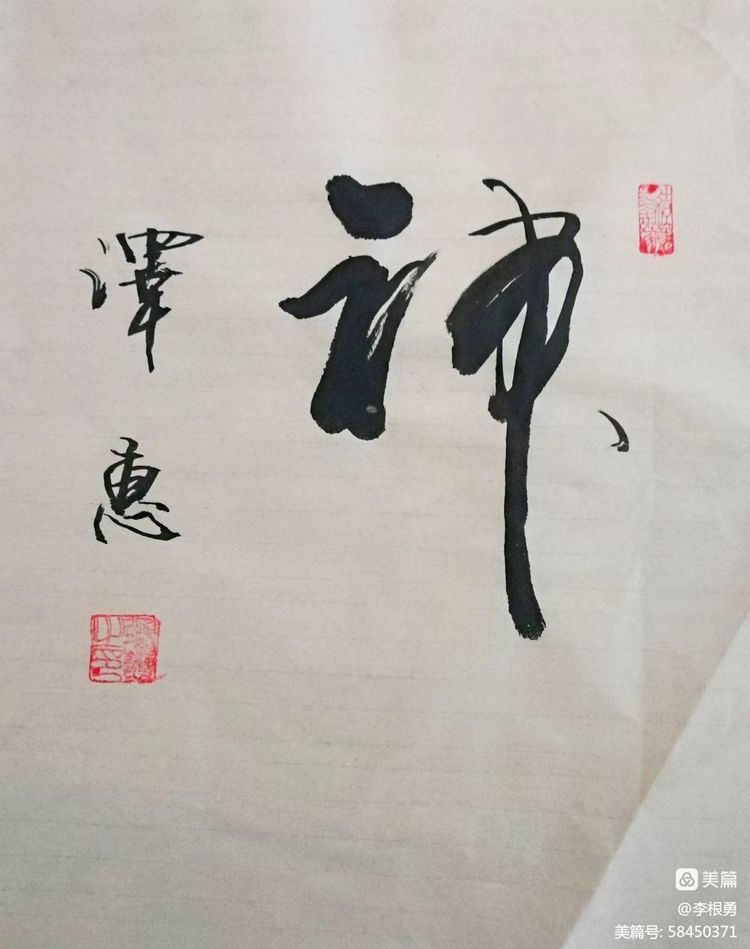 神
澤惠
美篇
@李根勇
美篇号: 58450371